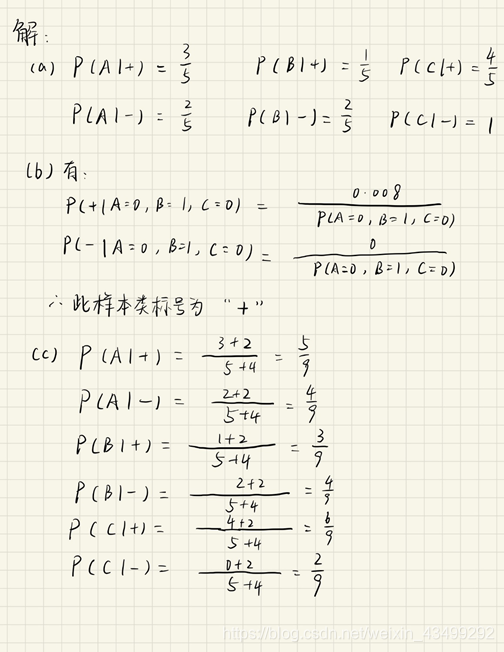 解:
(a) P(A|+) = 3/5 P(B|+) = 1/5 P(C|+) = 4/5
P(A|-) = 2/5 P(B|-) = 2/5 P(C|-) = 1
(b) 有:
P(+|A=0, B=1, C=0) = 0.008 / P(A=0, B=1, C=0)
P(-|A=0, B=1, C=0) = 0 / P(A=0, B=1, C=0)
∴ 此样本类标号为 "+"
(c) P(A|+) = 3+2 / 5+4 = 5/9
P(A|-) = 2+2 / 5+4 = 4/9
P(B|+) = 1+2 / 5+4 = 3/9
P(B|-) = 2+2 / 5+4 = 4/9
P(C|+) = 4+2 / 5+4 = 6/9
P(C|-) = 0+2 / 5+4 = 2/9
https://blog.csdn.net/weixin_43499292